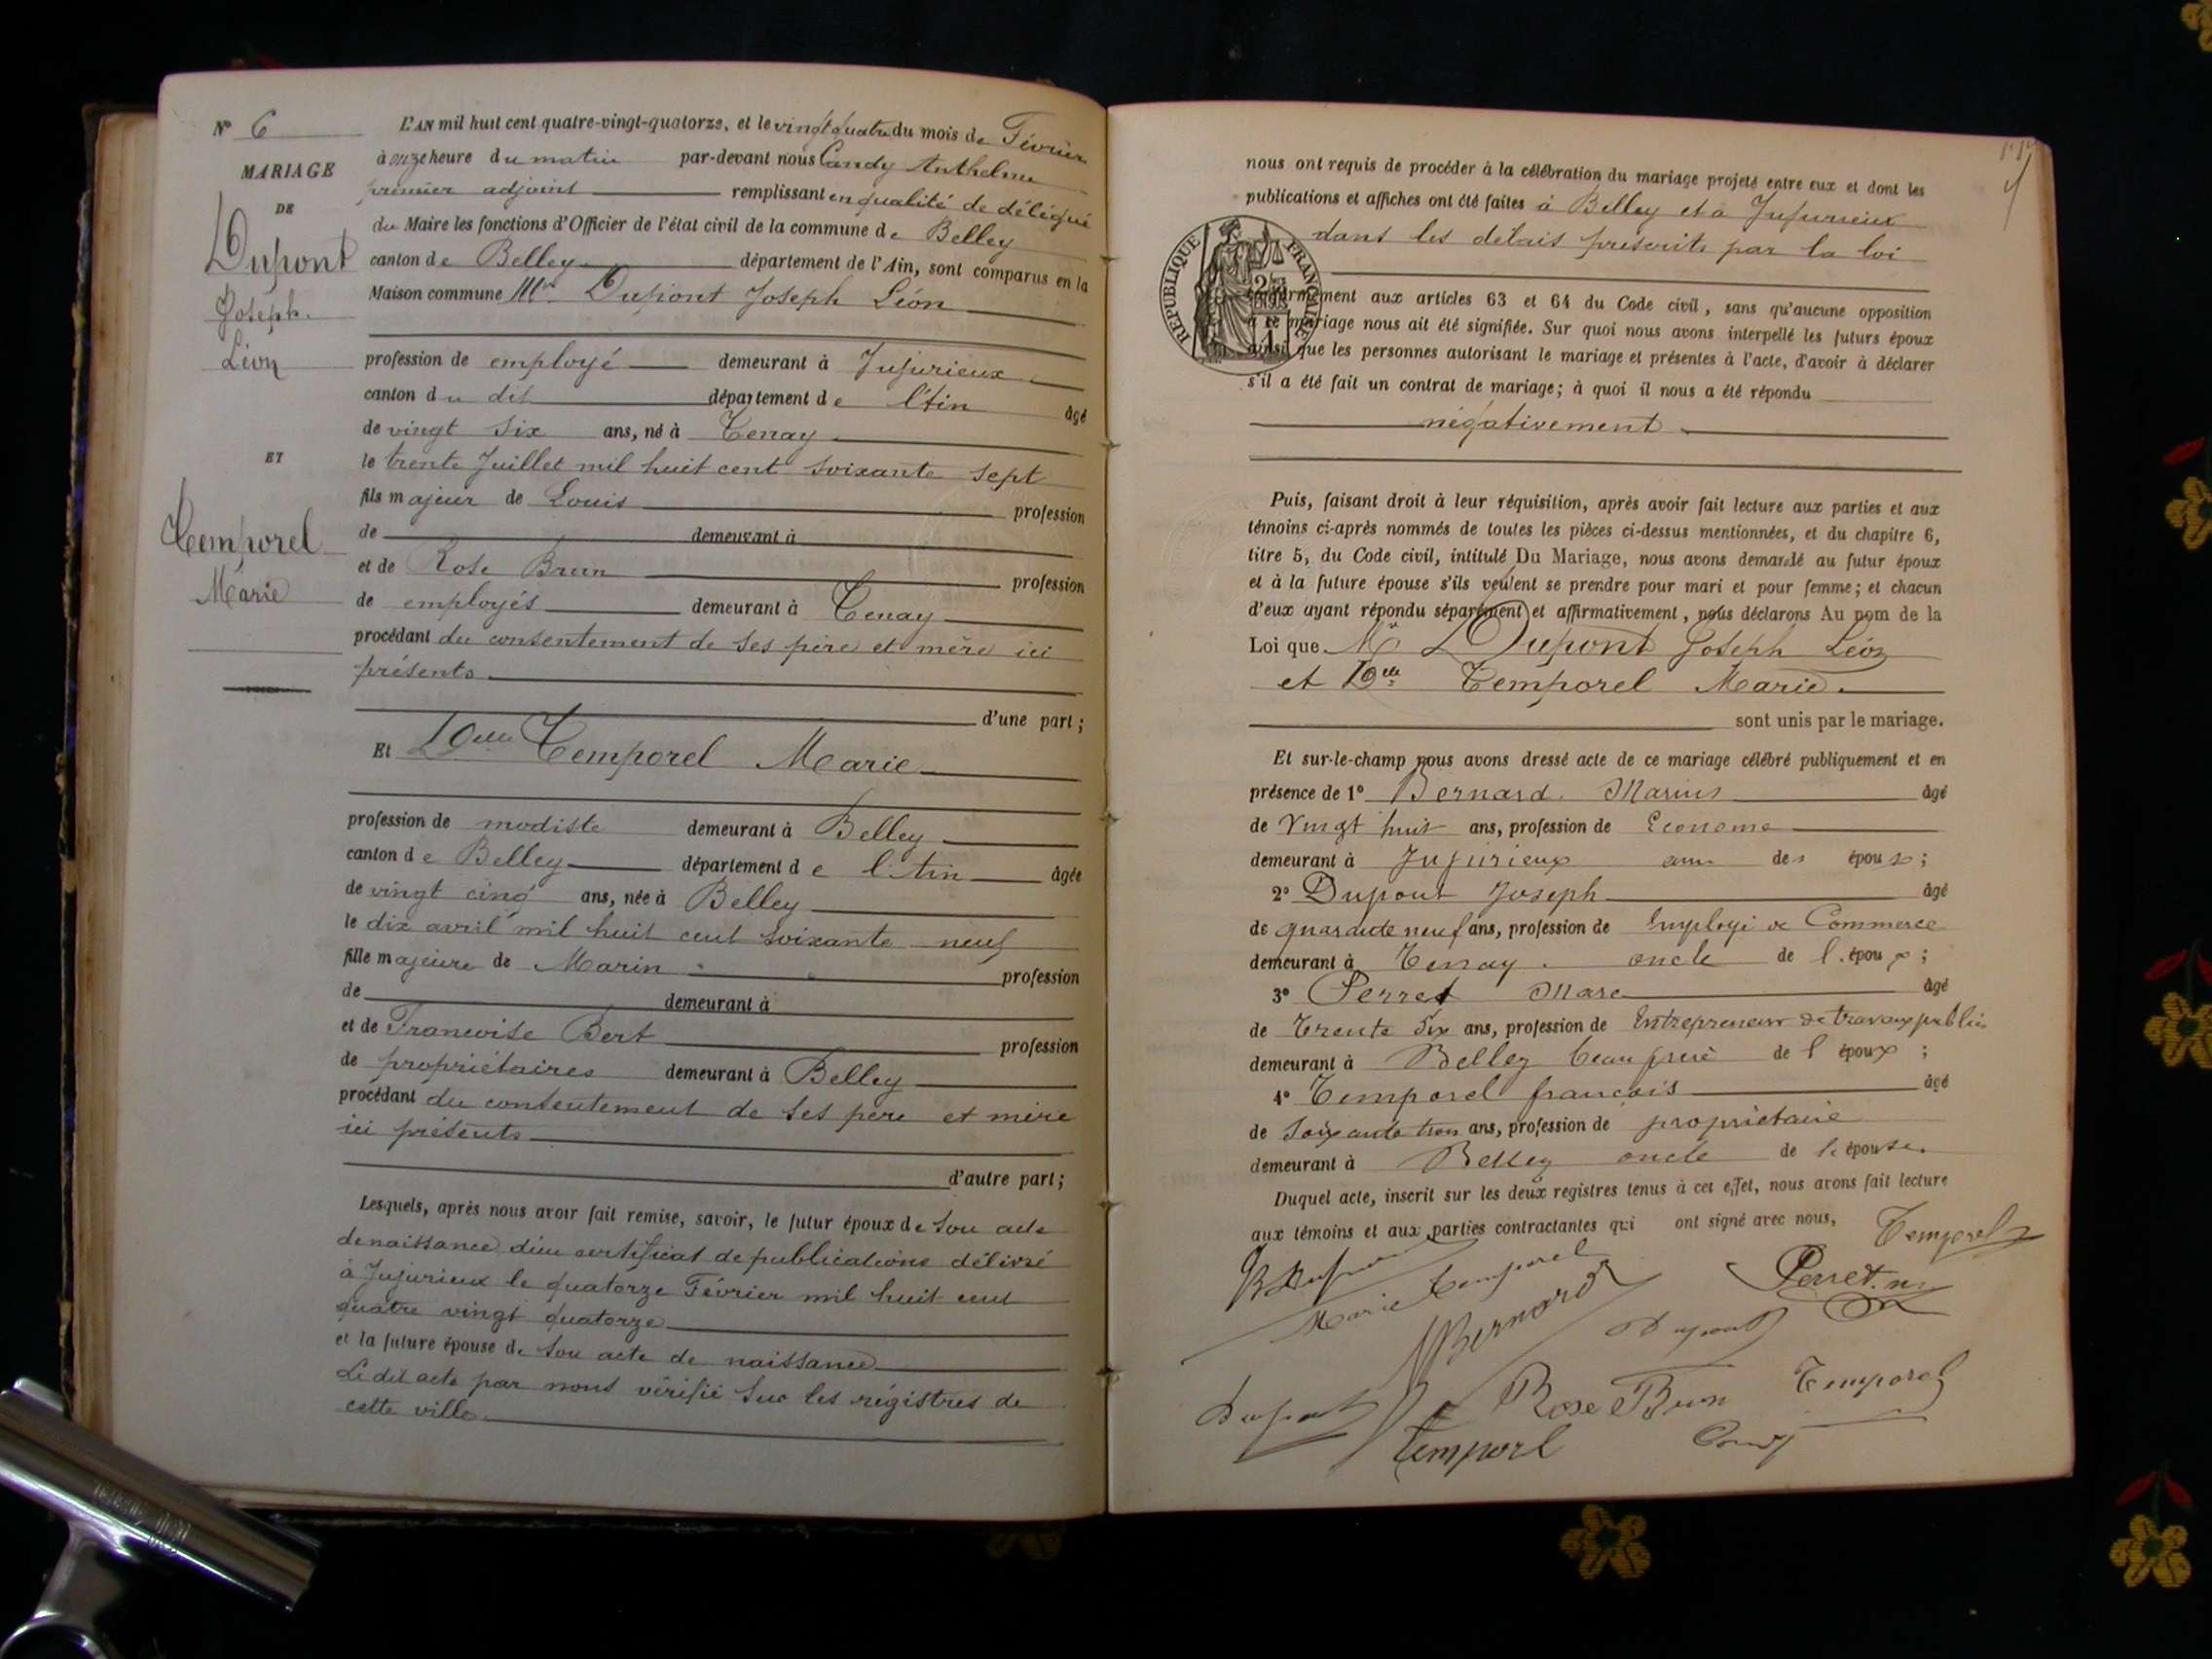 N° 6
MARIAGE
DE
Dupont
Joseph
Léon
ET
Temporel
Marie
L'AN mil huit cent quatre-vingt-quatorze, et le vingt quatre du mois de Février
à onze heure du matin par-devant nous Candy Anthelme
premier adjoint remplissant en qualité de délégué
du Maire les fonctions d'Officier de l'état civil de la commune de Belley
canton de Belley département de l'Ain, sont comparus en la
Maison commune Mr Dupont Joseph Léon
profession de employé demeurant à Jujurieux
canton du dit département de l'Ain âgé
de vingt six ans, né à Tenay
le trente Juillet mil huit cent soixante sept
fils majeur de Louis profession
de demeurant à
et de Rose Brun profession
de employés demeurant à Tenay
procédant du consentement de ses père et mère ici
présents
d'une part ;
Et Delle Temporel Marie
profession de modiste demeurant à Belley
canton de Belley département de l'Ain âgée
de vingt cinq ans, née à Belley
le dix avril mil huit cent soixante neuf
fille majeure de Marin profession
de demeurant à
et de Francoise Bert profession
de propriétaires demeurant à Belley
procédant du consentement de ses père et mère
ici présents
d'autre part ;
Lesquels, après nous avoir fait remise, savoir, le futur époux de son acte
de naissance, d'un certificat de publications délivré
à Jujurieux le quatorze Février mil huit cent
quatre vingt quatorze
et la future épouse de son acte de naissance
Le dit acte par nous vérifié sur les régistres de
cette ville.
nous ont requis de procéder à la célébration du mariage projeté entre eux et dont les
publications et affiches ont été faites à Belley et à Jujurieux
dans les délais prescrits par la loi
RÉPUBLIQUE FRANÇAISE
conformément aux articles 63 et 64 du Code civil, sans qu'aucune opposition
à ce mariage nous ait été signifiée. Sur quoi nous avons interpellé les futurs époux
ainsi que les personnes autorisant le mariage et présentes à l'acte, d'avoir à déclarer
s'il a été fait un contrat de mariage ; à quoi il nous a été répondu
négativement.
Puis, faisant droit à leur réquisition, après avoir fait lecture aux parties et aux
témoins ci-après nommés de toutes les pièces ci-dessus mentionnées, et du chapitre 6,
titre 5, du Code civil, intitulé Du Mariage, nous avons demandé au futur époux
et à la future épouse s'ils veulent se prendre pour mari et pour femme ; et chacun
d'eux ayant répondu séparément et affirmativement, nous déclarons Au nom de la
Loi que Mr Dupont Joseph Léon
et Delle Temporel Marie.
sont unis par le mariage.
Et sur-le-champ nous avons dressé acte de ce mariage célébré publiquement et en
présence de 1° Bernard Marius âgé
de Vingt huit ans, profession de Econome
demeurant à Jujurieux ami des époux ;
2° Dupont Joseph âgé
de quarante neuf ans, profession de Employé de Commerce
demeurant à Tenay oncle de l'époux ;
3° Perret Marc âgé
de Trente Six ans, profession de Entrepreneur de travaux publics
demeurant à Belley beau frère de l'époux ;
4° Temporel francois âgé
de Soixante trois ans, profession de propriétaire
demeurant à Belley oncle de l'épouse.
Duquel acte, inscrit sur les deux registres tenus à cet effet, nous avons fait lecture
aux témoins et aux parties contractantes qui ont signé avec nous,
Temporel
Marie Temporel
Perret
Bernard
Dupont
Dupont
Rose Brun
Temporel
Temporl
Candy